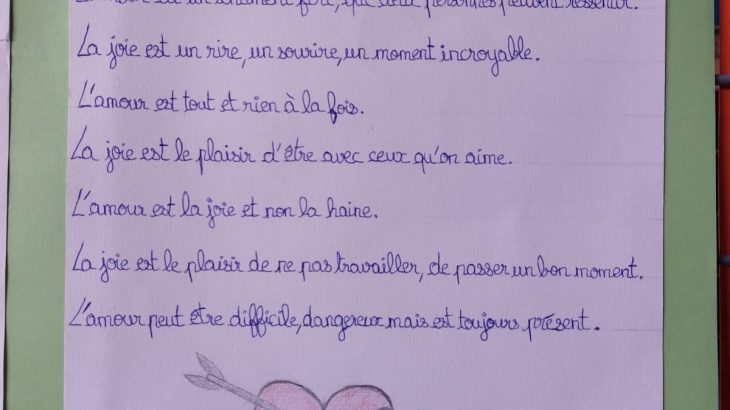 L'amour est un sentiment fort, que deux personnes peuvent ressentir.
La joie est un rire, un sourire, un moment incroyable.
L'amour est tout et rien à la fois.
La joie est le plaisir d'être avec ceux qu'on aime.
L'amour est la joie et non la haine.
La joie est le plaisir de ne pas travailler, de passer un bon moment.
L'amour peut être difficile, dangereux mais est toujours présent.